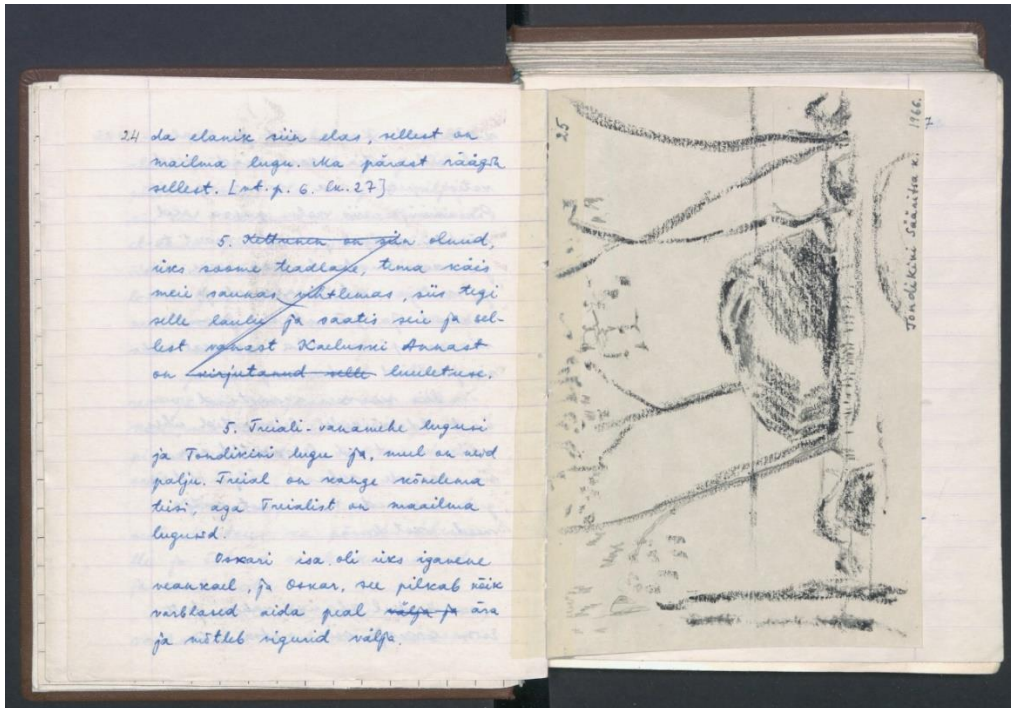 24 da elanik siin elas, sellest on
mailma lugu. Ma pärast räägin
sellest. [vt. p. 6. lk. 27]
5. Kettunen on siin olnud,
üks soome teadlane, tema käis
meie saunas vihtlemas, siis tegi
selle laulu ja saatis seie ja sel-
lest vanast Kaeluski Annast
on kirjutanud selle luuletuse.
5. Treiali-vanamehe lugusi
ja Tondikivi lugu ja, mul on neid
palju. Treial on kange kõnelema
teisi, aga Treialist on maailma
lugusid.
Oskari isa oli üks igavene
veankael, ja Oskar, see pilkab kõik
varblased aida peal välja ja ära
ja mõtleb vigurid välja.
25
Tondikivi Sääritsa k. 1966.